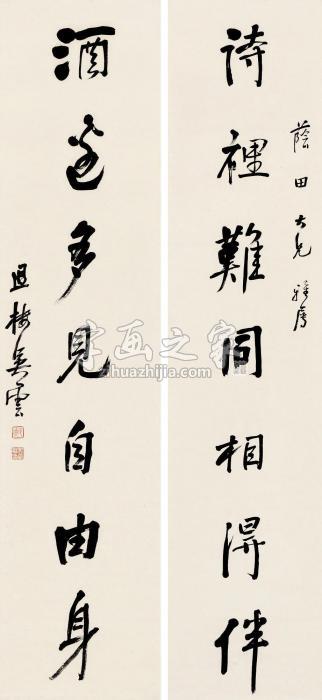 蔭田大兄雅屬
詩裡難同相得伴
酒邊多見自由身
退樓吳雲
字画之家
zhuazhijia.com